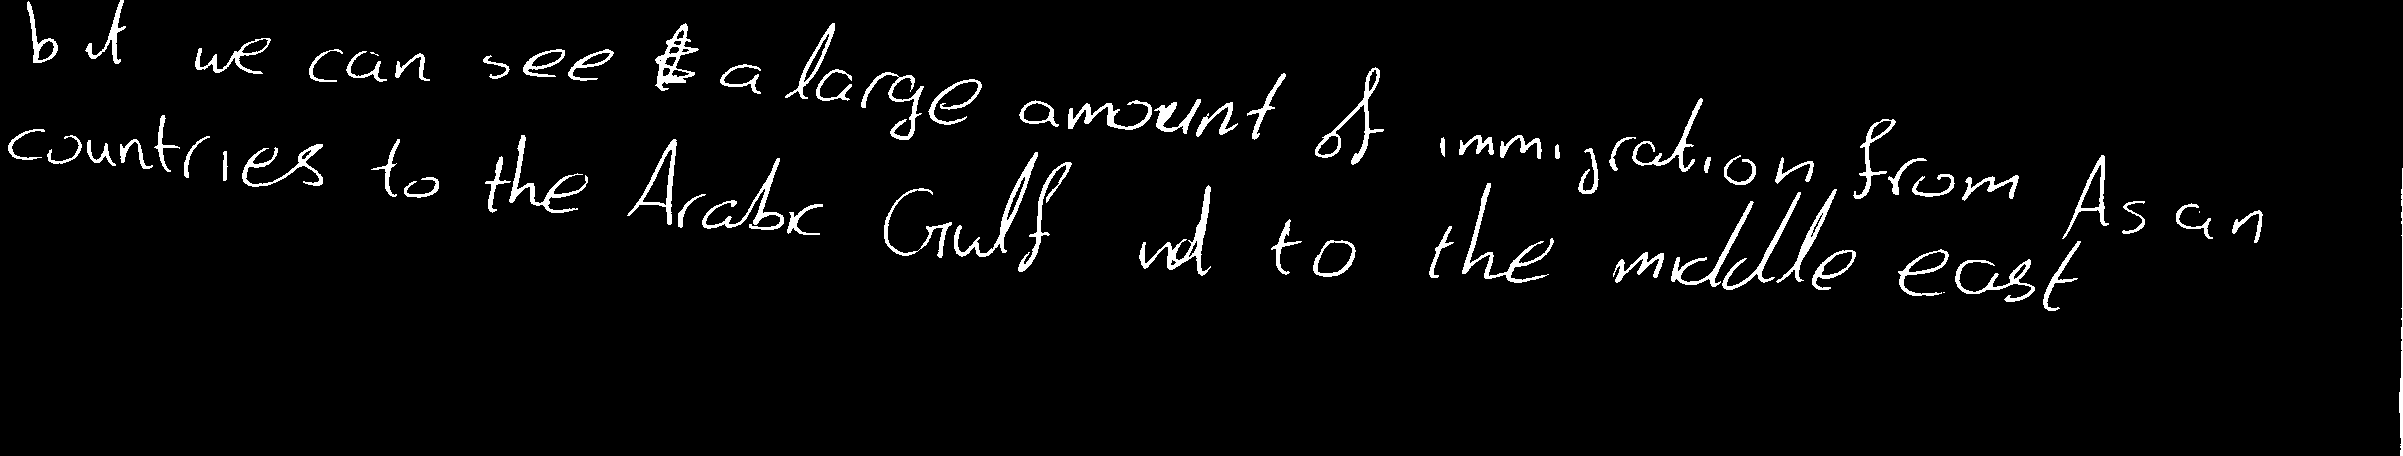 but we can see a large amount of immigration from Asan
countries to the Arabic Gulf nd to the middle east